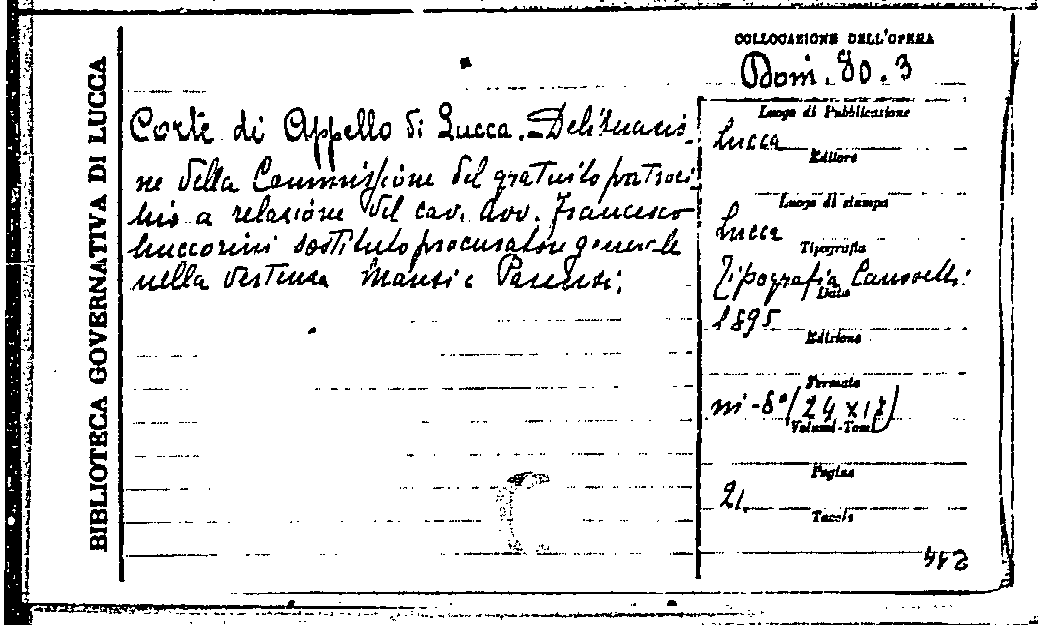 BIBLIOTECA GOVERNATIVA DI LUCCA
COLLOCAZIONE DELL'OPERA
Doni. 80. 3
Corte di Appello di Lucca. - Deliberazio-
ne della Commissione del gratuito patroci-
nio a relazione del cav. Avv. Francesco
sostituto procuratore generale
nella vertenza Mansi e Parensi.
Luogo di Pubblicazione
Lucca
Editore
Luogo di stampa
Lucca
Tipografia
Tipografia Canovetti
Data
1895
Edizione
Formato
in-8° (24 x 18)
Volumi-Tomi
Pagine
21.
Tavole